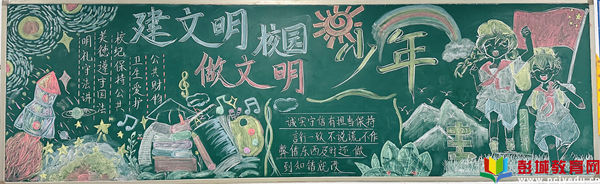 建文明校园
做文明少年
明礼守法讲
美德遵守国法
校纪保持公共
卫生爱护
公共财物
诚实守信有担当保持
言行一致不说谎不作
弊借东西及时还 做
到知错就改
彭城教育网